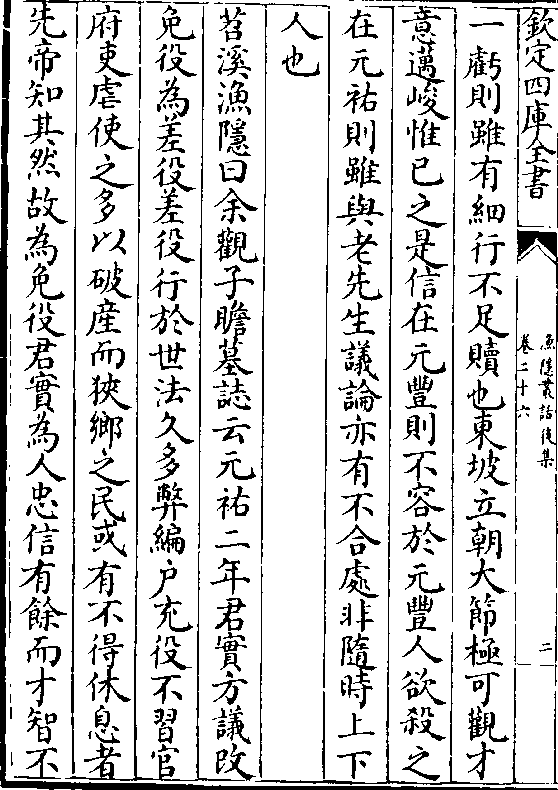 欽定四庫全書
漁隱叢話後集
卷二十六
二
一虧則雖有細行不足贖也東坡立朝大節極可觀才
意邁峻惟已之是信在元豐則不容於元豐人欲殺之
在元祐則雖與老先生議論亦有不合處非隨時上下
人也
苕溪漁隱曰余觀子瞻墓誌云元祐二年君實方議改
免役為差役差役行於世法久多弊編户充役不習官
府吏虐使之多以破産而狹鄉之民或有不得休息者
先帝知其然故為免役君實為人忠信有餘而才智不